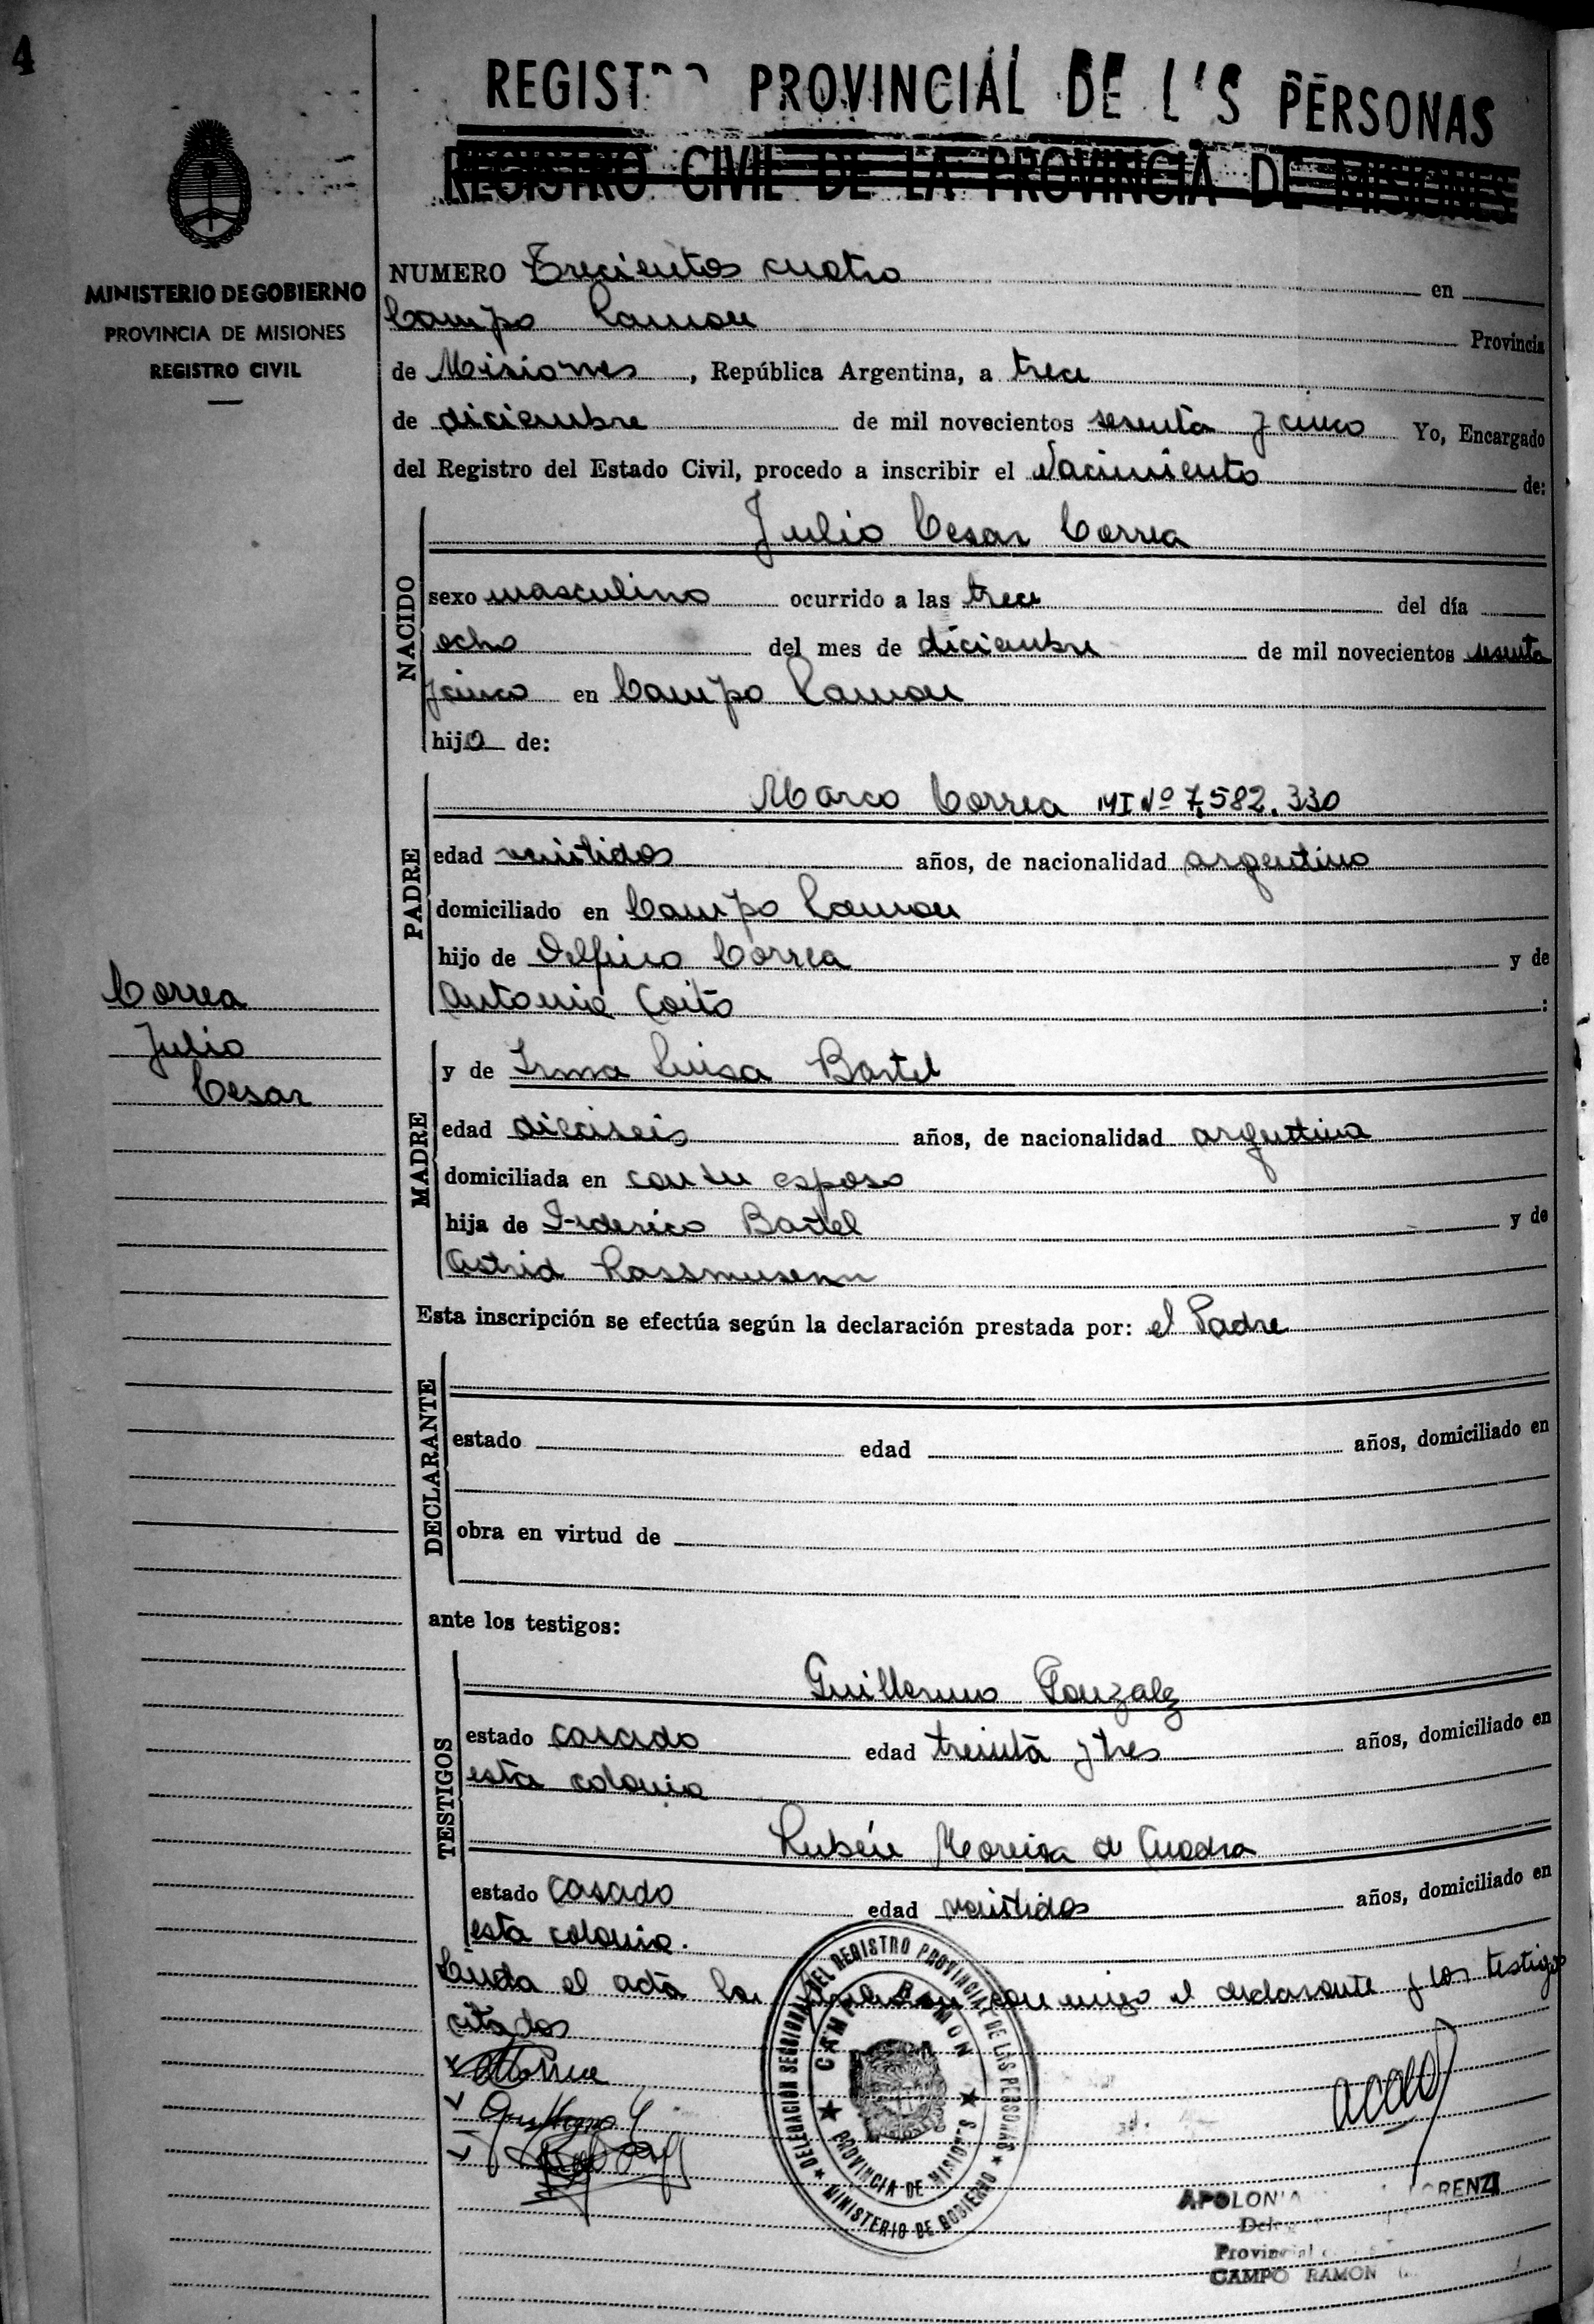 4
REGIST PROVINCIAL DE L S PERSONAS
REGISTRO CIVIL DE LA PROVINCIA DE MISIONES
MINISTERIO DE GOBIERNO
PROVINCIA DE MISIONES
REGISTRO CIVIL
NUMERO Trecientos cuatro en
Campo Ramon Provincia
de Misiones, República Argentina, a trece
de diciembre de mil novecientos sesenta y cinco Yo, Encargado
del Registro del Estado Civil, procedo a inscribir el Nacimiento de:
NACIDO
Julio Cesar Correa
sexo masculino ocurrido a las trece del día
ocho del mes de diciembre de mil novecientos sesenta
y cinco en Campo Ramon
hijo de:
PADRE
Marco Correa MI Nº 7,582.330
edad veintidos años, de nacionalidad argentino
domiciliado en Campo Ramon
hijo de Delfino Correa y de
Antonia Coito :
Correa
Julio
Cesar
MADRE
y de Irma Luisa Bartel
edad dieciseis años, de nacionalidad argentina
domiciliada en con su esposo
hija de Federico Bartel y de
Astrid Rassmusenn
Esta inscripción se efectúa según la declaración prestada por: el Padre
DECLARANTE
estado edad años, domiciliado en
obra en virtud de
ante los testigos:
TESTIGOS
Guillermo Gonzalez
estado casado edad treinta y tres años, domiciliado en
esta colonia
Rubén Moreira de Cuadra
estado casado edad veintidos años, domiciliado en
esta colonia.
Leida el acta la firman conmigo el declarante y los testigos
citados
DELEGACIÓN SECCIONAL DEL REGISTRO PROVINCIAL DE LAS PERSONAS
CAMPO RAMON
PROVINCIA DE MISIONES
MINISTERIO DE GOBIERNO
APOLON RENZI
Provincial
CAMPO RAMON